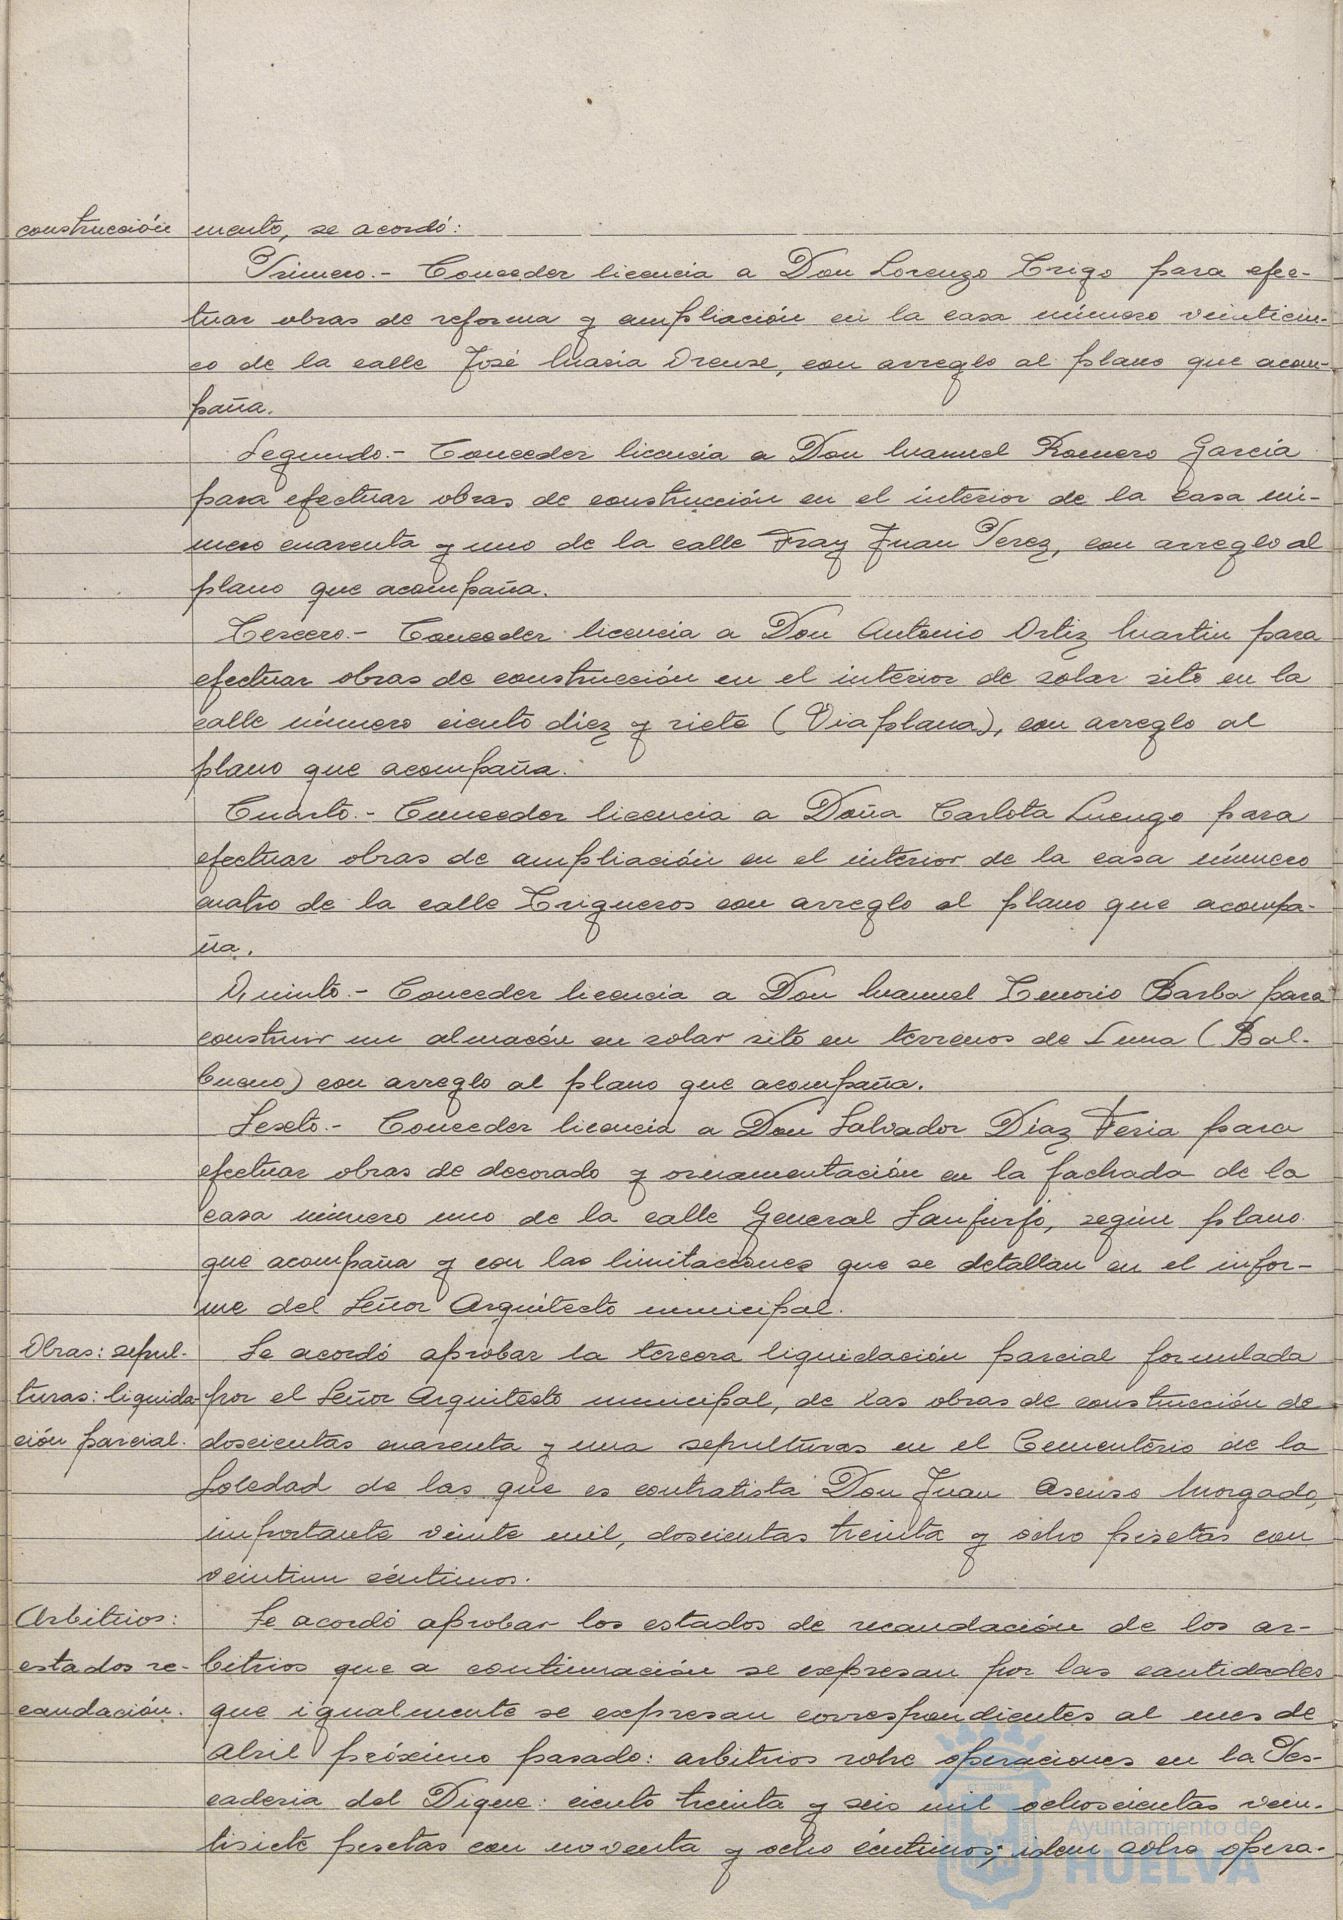 construcción mento, se acordó:
Primero.- Conceder licencia a Don Lorenzo Trigo para efec-
tuar obras de reforma y ampliación en la casa número veinticin-
co de la calle José María Orense, con arreglo al plano que acom-
paña.
Segundo.- Conceder licencia a Don Manuel Romero García
para efectuar obras de construcción en el interior de la casa nú-
mero cuarenta y uno de la calle Fray Juan Perez, con arreglo al
plano que acompaña.
Tercero.- Conceder licencia a Don Antonio Ortiz Martin para
efectuar obras de construcción en el interior de solar sito en la
calle número ciento diez y siete (Viaplana), con arreglo al
plano que acompaña.
Cuarto.- Conceder licencia a Doña Carlota Luengo para
efectuar obras de ampliación en el interior de la casa número
cuatro de la calle Trigueros con arreglo al plano que acompa-
ña.
Quinto.- Conceder licencia a Don Manuel Tenorio Barba para
construir un almacén en solar sito en terrenos de Luna (Bal-
bueno) con arreglo al plano que acompaña.
Sexto.- Conceder licencia a Don Salvador Díaz Feria para
efectuar obras de decorado y ornamentación en la fachada de la
casa número uno de la calle General Sanjurjo, según plano
que acompaña y con las limitaciones que se detallan en el infor-
me del Señor Arquitecto municipal.
Obras: sepul-
turas: liquida
ción parcial.
Se acordó aprobar la tercera liquidación parcial formulada
por el Señor Arquitecto municipal, de las obras de construcción de
doscientas cuarenta y una sepulturas en el Cementerio de la
Soledad de las que es contratista Don Juan Asenso Morgado,
importante veinte mil, doscientas treinta y ocho pesetas con
veintiun céntimos.
Arbitrios:
estados re-
caudación.
Se acordó aprobar los estados de recaudación de los ar-
bitrios que a continuación se expresan por las cantidades
que igualmente se expresan correspondientes al mes de
Abril próximo pasado: arbitrios sobre operaciones en la Pes-
cadería del Dique: ciento treinta y seis mil ochocientas vein-
tisiete pesetas con noventa y ocho céntimos; idem sobre opera-
Ayuntamiento de
HUELVA